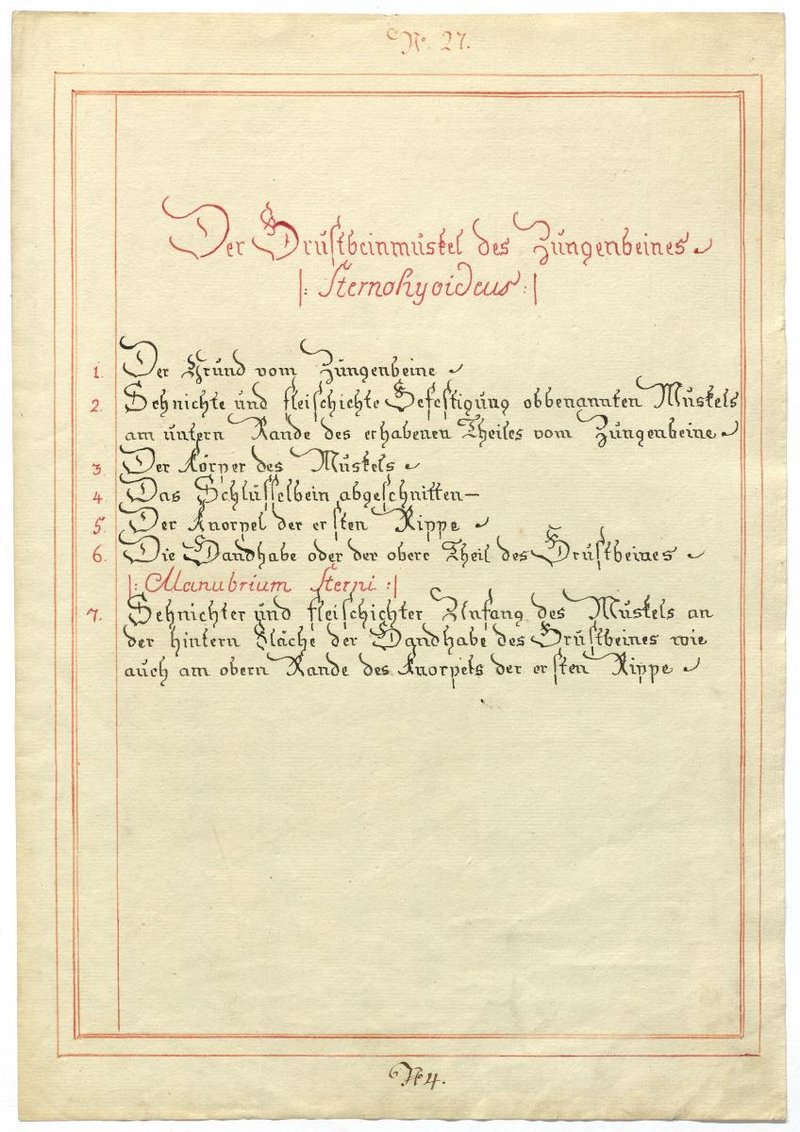 No. 27.
Der Brustbeinmuskel des Zungenbeines
|: Sternohyoideus :|
1. Der Grund vom Zungenbeine
2. Sehnichte und fleischichte Befestigung obbenannten Muskels
am untern Rande des erhabenen Theiles vom Zungenbeine
3. Der Körper des Muskels
4. Das Schlüsselbein abgeschnitten—
5. Der Knorpel der ersten Rippe
6. Die Handhabe oder der obere Theil des Brustbeines
|: Manubrium Sterni :|
7. Sehnichter und fleischichter Anfang des Muskels an
der hintern Fläche der Handhabe des Brustbeines wie
auch am obern Rande des Knorpels der ersten Rippe
No 4.